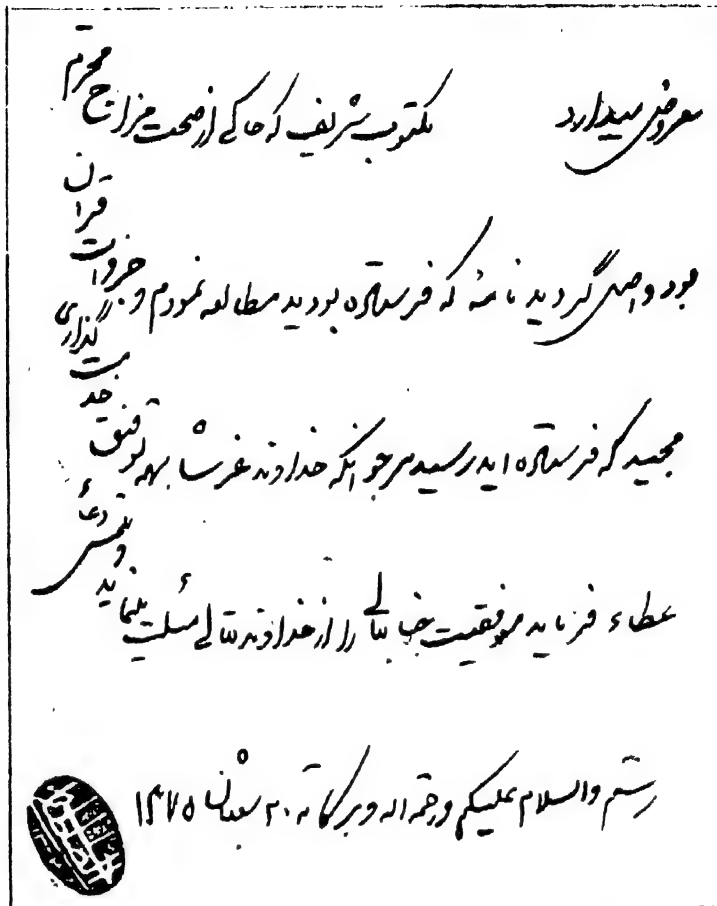 معروض میدارد مکتوب شریف که حاکی از صحت مزاج محترم
بود واصل گردید نامهٔ که فرستاده بودید مطالعه نمودم و جزوات قرآن
مجید که فرستاده اید رسید مرجو آنکه خداوند عز شأنه بهمه توفیق خدمت گذاری
عطاء فرماید موفقیت جنابعالی را از خداوند تعالی مسئلت مینماید و ملتمس دعاء
هستم والسلام علیکم ورحمة اله وبرکاته ۲۰ شعبان ۱۳۷۵